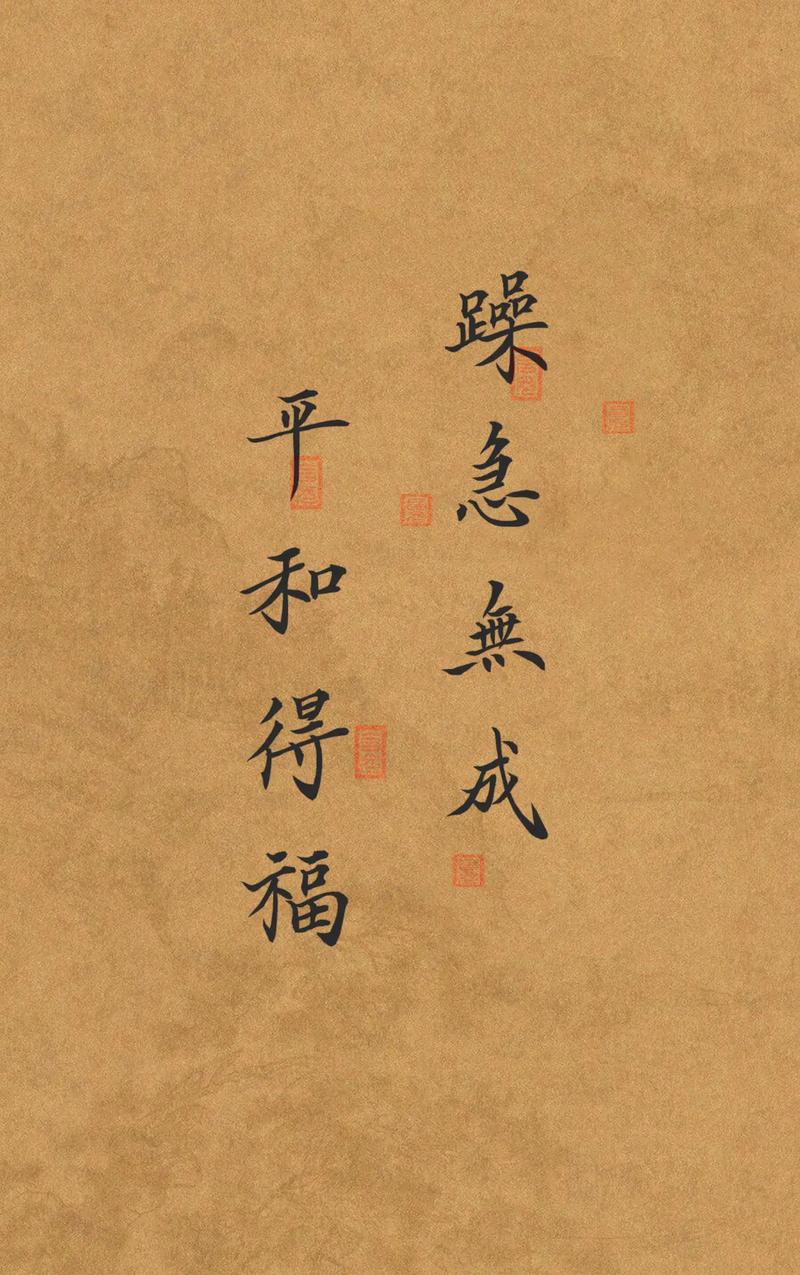 躁急無成
平和得福